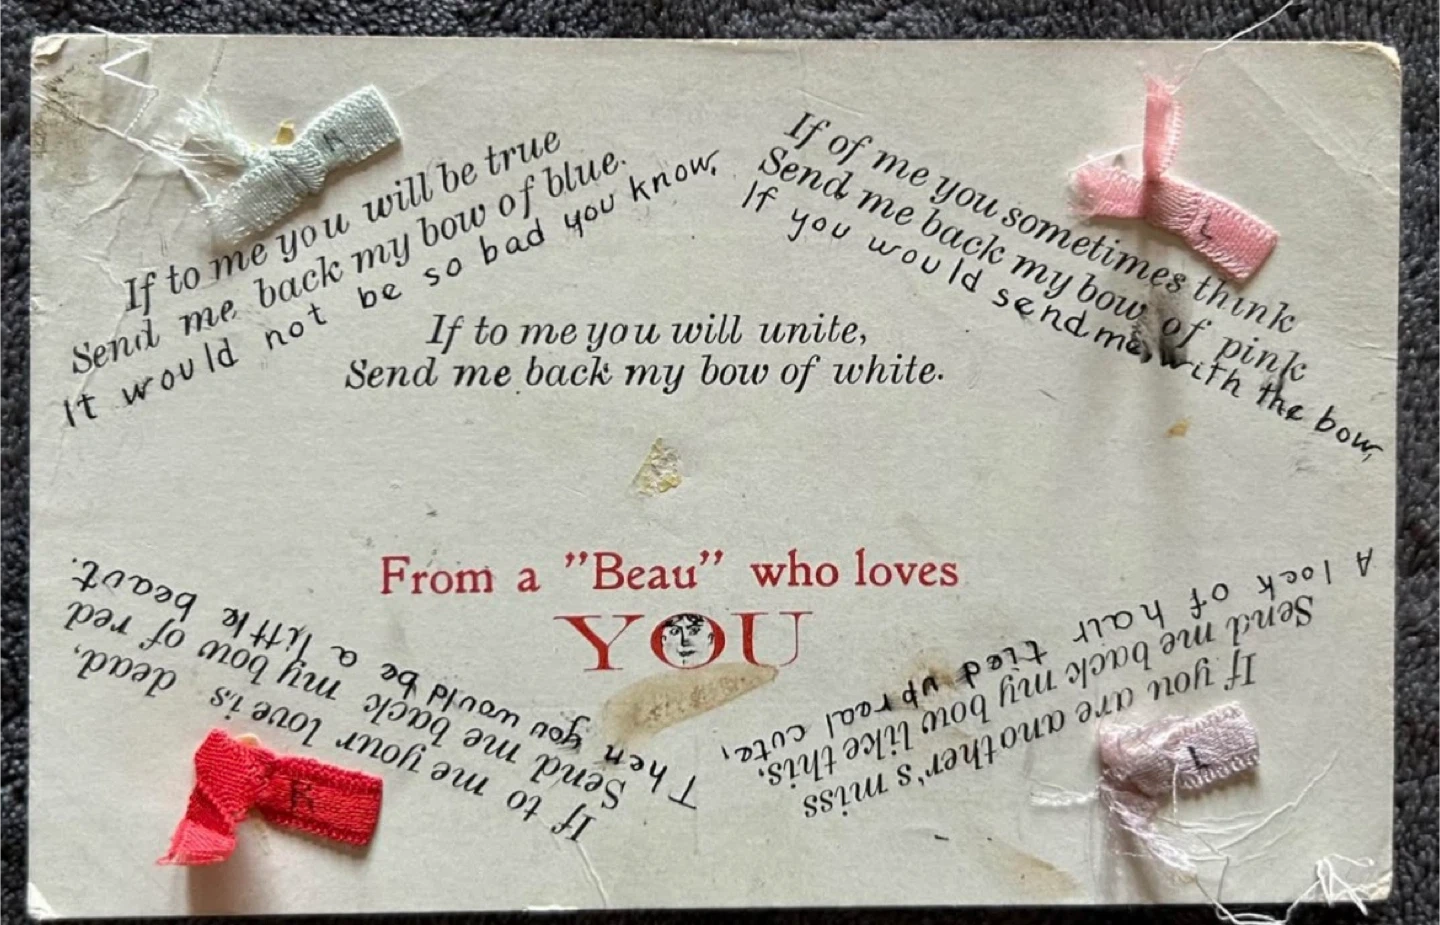 If to me you will be true
Send me back my bow of blue.
It would not be so bad you know.
If of me you sometimes think
Send me back my bow of pink
If you would send me, with the bow,
If to me you will unite,
Send me back my bow of white.
From a "Beau" who loves
YOU
If to me your love is dead,
Send me back my bow of red
Then you would be a little beaut.
If you are another's miss
Send me back my bow like this.
A lock of hair tied up real cute,
R
L
R
L